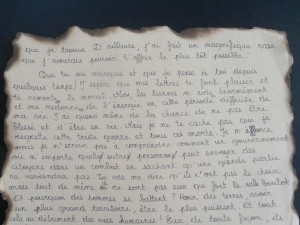 que je trouve. D'ailleurs, j'ai fait un magnifique vase
que j'aimerais pouvoir t'offrir le plus tôt possible.
Que tu me manques et que je pense à toi depuis
quelques temps! J'espère que mes lettres te font plaisir, et
te remonte le moral. Moi les tiennes m'aide énormément
et me redonne de l'énergie en cette période difficile de
ma vie. J'ai quand même de la chance de ne pas être
blessé et d'être en vie. Mais je ne te cache pas que je
regrette cette triste guerre et tous ces morts. Je m'
mais je n'arrive pas à comprendre comment un gouvernement
ou n'importe quelle autre personne peut envoyer des
citoyens dans un combat en sachant qu'une grande partie
ne reviendra pas. Tu vas me dire qu'ils n'ont pas le choix
mais tout de même ce ne sont pas eux qui font le sale boulot.
Et pourquoi des hommes se battent? Pour des terres, avoir
un plus grand territoire, être le plus puissant. Et tout
cela au détriment des vies humaines! Car de toute façon, ils